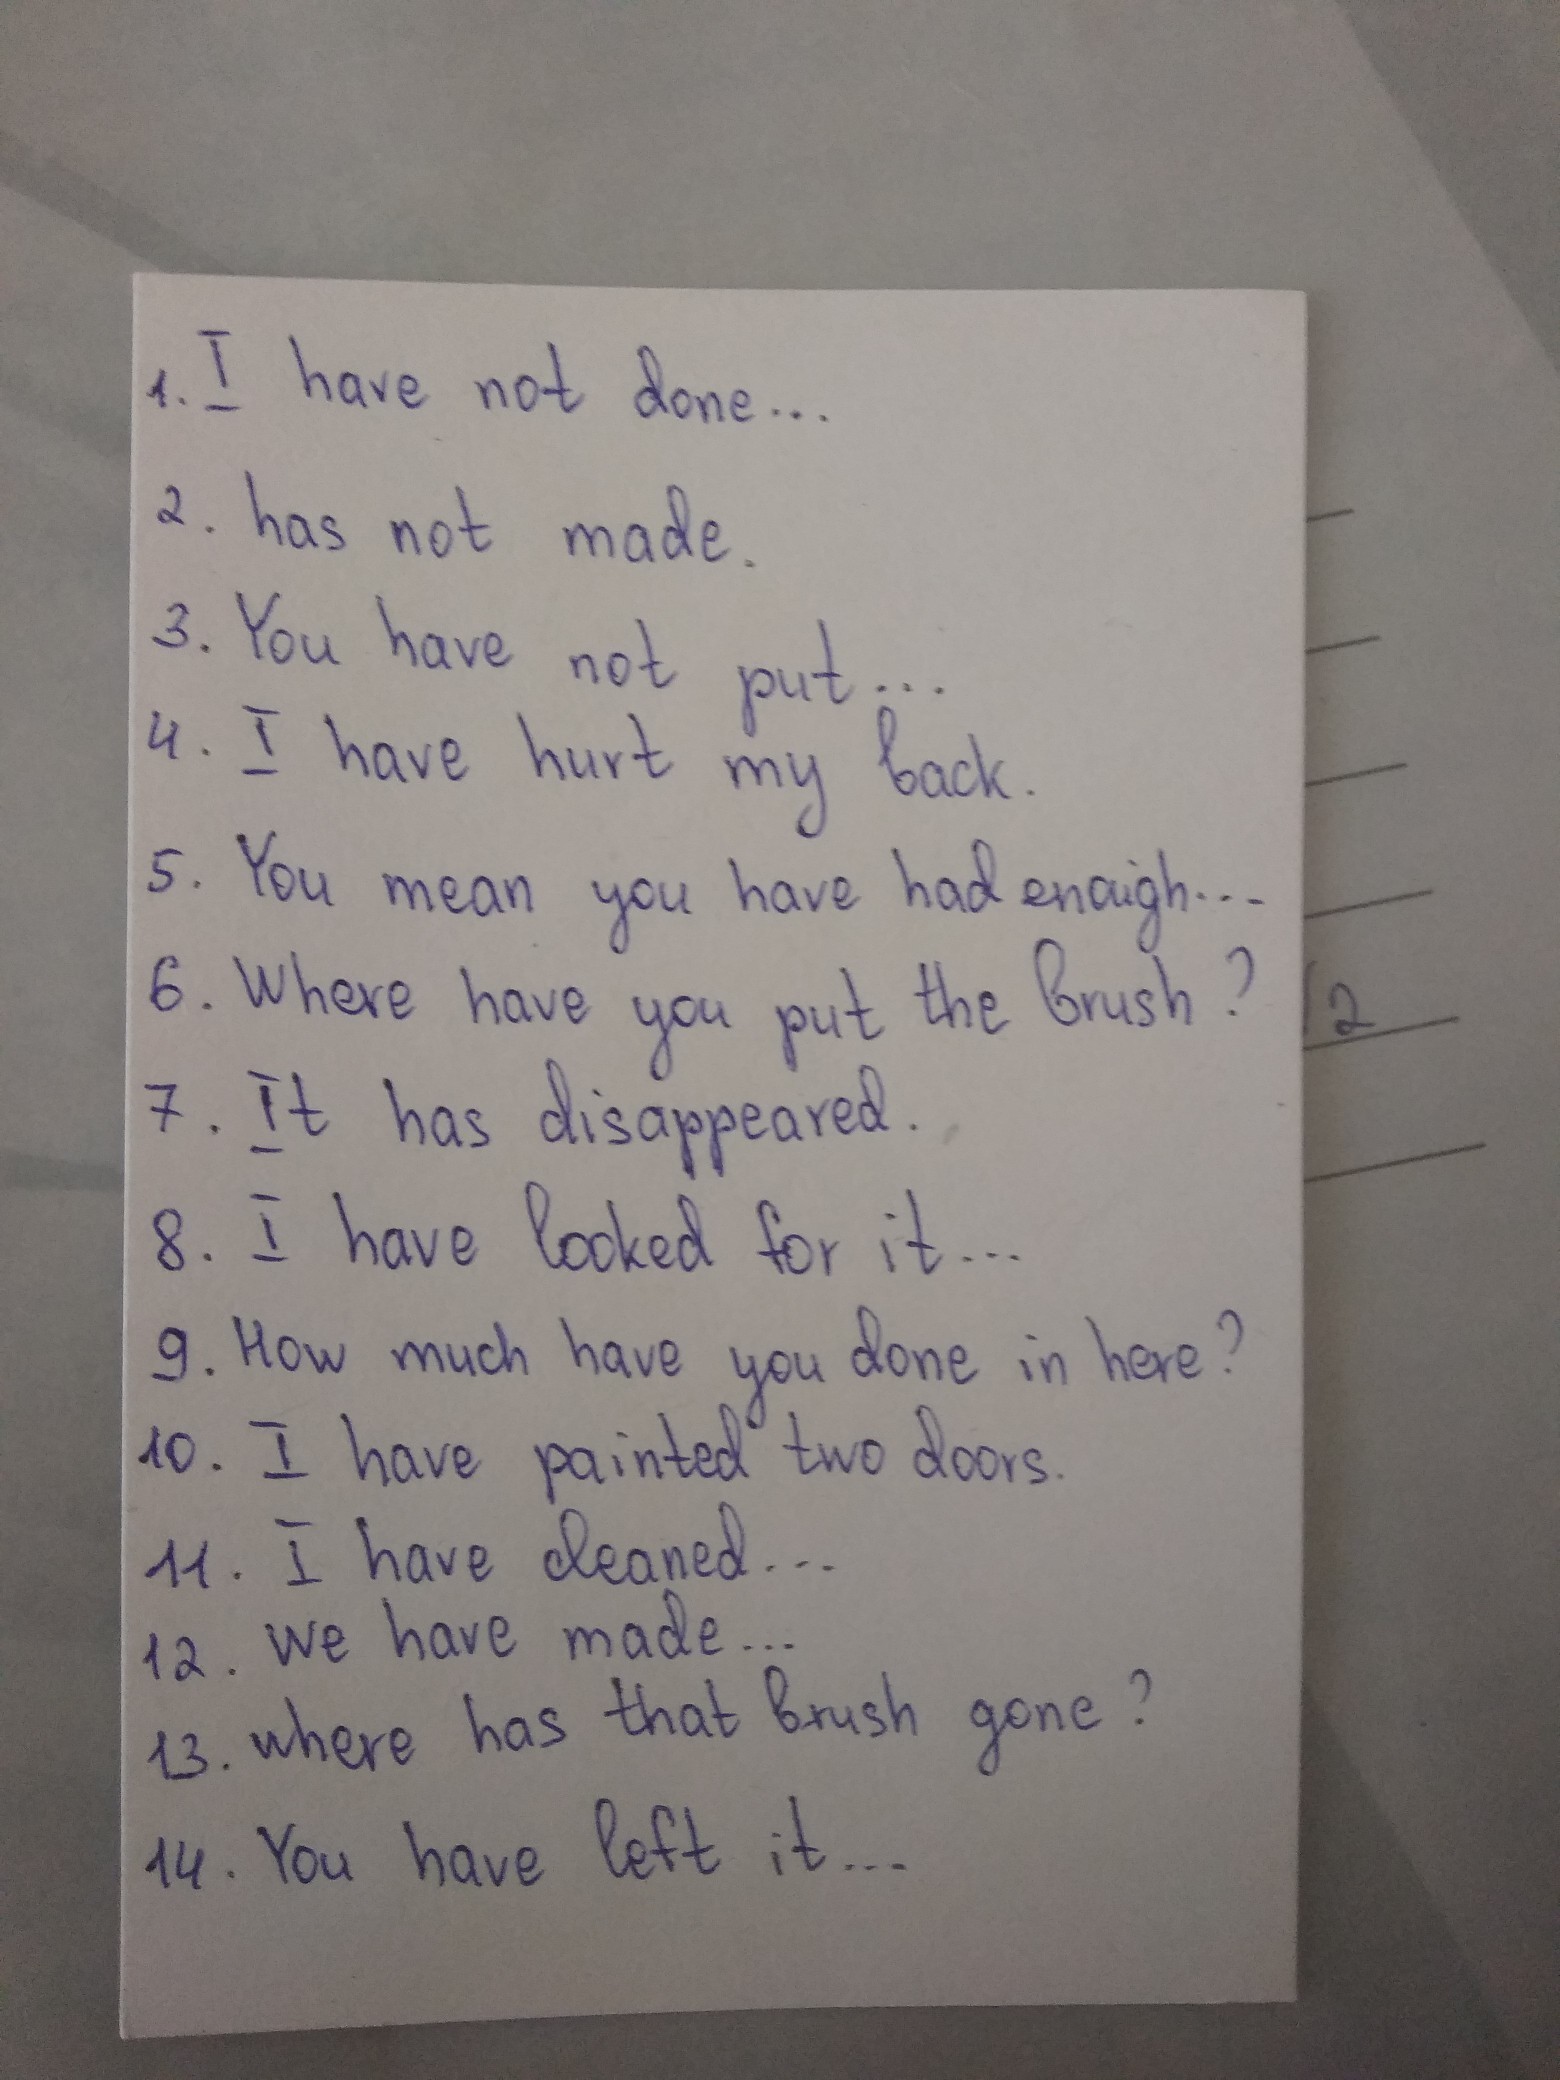 1. I have not done...
2. has not made.
3. You have not put...
4. I have hurt my back.
5. You mean you have had enough...
6. Where have you put the brush?
7. It has disappeared.
8. I have looked for it...
9. How much have you done in here?
10. I have painted two doors.
11. I have cleaned...
12. We have made...
13. where has that brush gone?
14. You have left it...
2